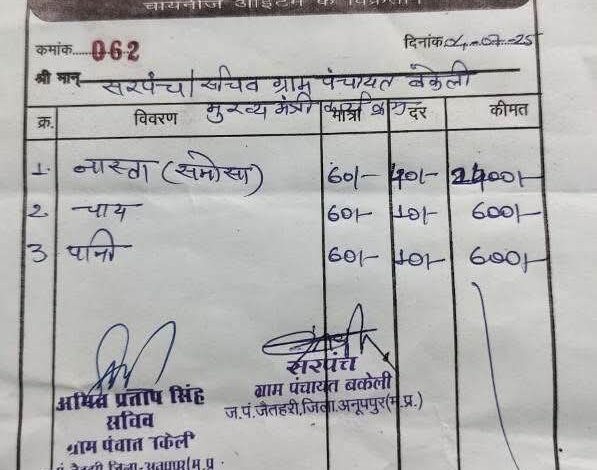 चायनीज आइटम के विक्रेता
कमांक.....062 दिनांक 04-07-25
श्री मान् सरपंच/सचिव ग्राम पंचायत बकेली
मुख्य मंत्री
क्र. विवरण मात्रा दर कीमत
1. नास्ता (समोसा) 60/- 40/- 2400/-
2 चाय 60/- 10/- 600/-
3 पानि 60/- 10/- 600/-
सरपंच
ग्राम पंचायत बकेली
ज.पं.जैतहरी,जिला.अनूपपुर(म.प्र.)
अमित प्रताप सिंह
सचिव
ग्राम पंचात बकेली